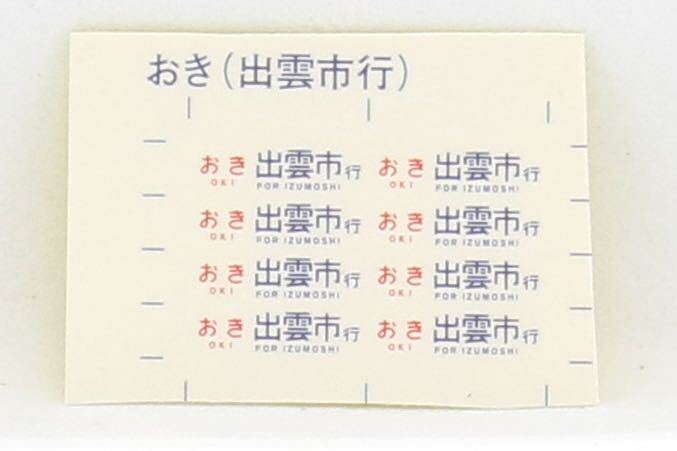 おき(出雲市行)
おき 出雲市行 おき 出雲市行
OKI FOR IZUMOSHI OKI FOR IZUMOSHI
おき 出雲市行 おき 出雲市行
OKI FOR IZUMOSHI OKI FOR IZUMOSHI
おき 出雲市行 おき 出雲市行
OKI FOR IZUMOSHI OKI FOR IZUMOSHI
おき 出雲市行 おき 出雲市行
OKI FOR IZUMOSHI OKI FOR IZUMOSHI